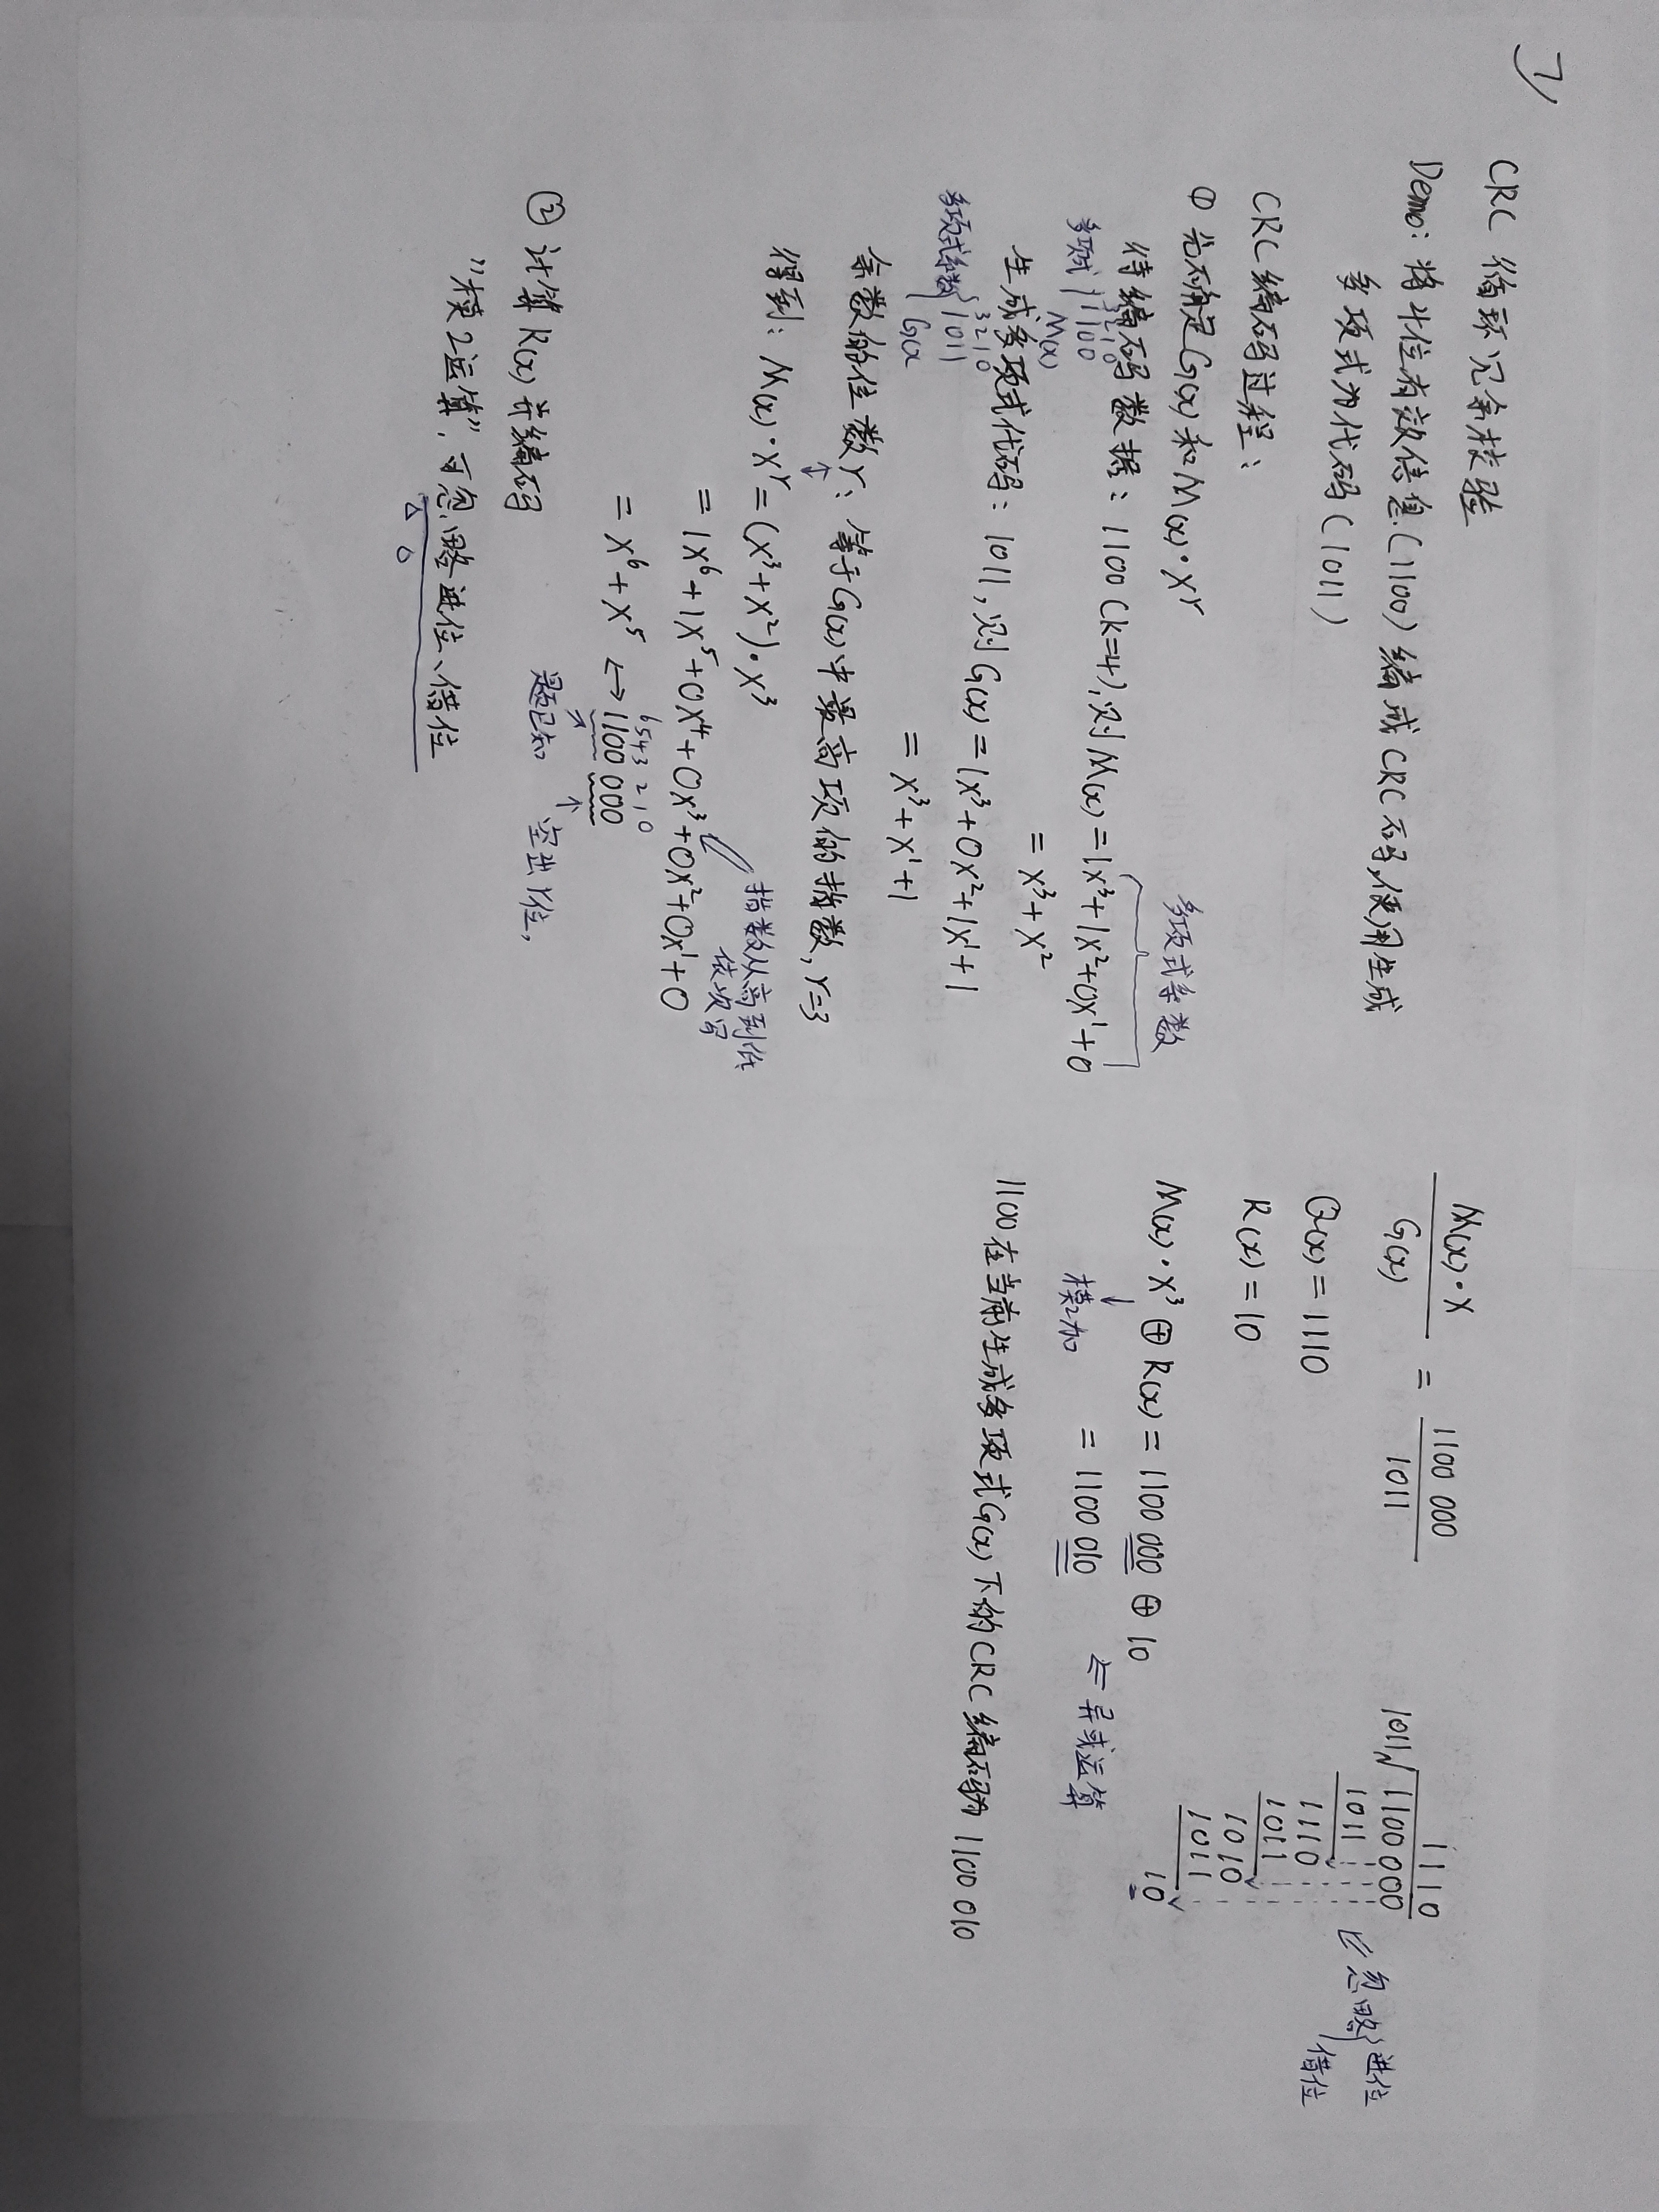 7)
CRC 循环冗余校验
Demo: 将4位有效信息(1100)编成CRC码,使用生成
多项式为代码(1011)
CRC编码过程:
① 先确定G(x)和M(x)·X^r
多项式系数
待编码数据: 1100(K=4),则M(x)=1X³+1X²+0X¹+0
3210
多项式 1100
M(x)
= X³+X²
生成多项式代码: 1011,则G(x)=1X³+0X²+1X¹+1
3210
多项式系数 1011
G(x
= X³+X¹+1
余数的位数r: 等于G(x)中最高项的指数, r=3
得到: M(x)·X^r=(X³+X²)·X³
指数从高到低
依次写
= 1X⁶+1X⁵+0X⁴+0X³+0X²+0X¹+0
6543 210
= X⁶+X⁵ ↔ 1100 000
题已知 空出r位,
② 计算R(x)并编码
"模2运算",可忽略进位、借位
M(x)·X / G(x) = 1100 000 / 1011
Q(x)=1110
R(x)=10
1110
1011√1100 000
1011
1110
1011
1010
1011
10
⇐ 忽略 进位
借位
M(x)·X³ ⊕ R(x) = 1100 000 ⊕ 10
↓
模2加
= 1100 010 ⇐ 异或运算
1100在当前生成多项式G(x)下的CRC编码为 1100 010